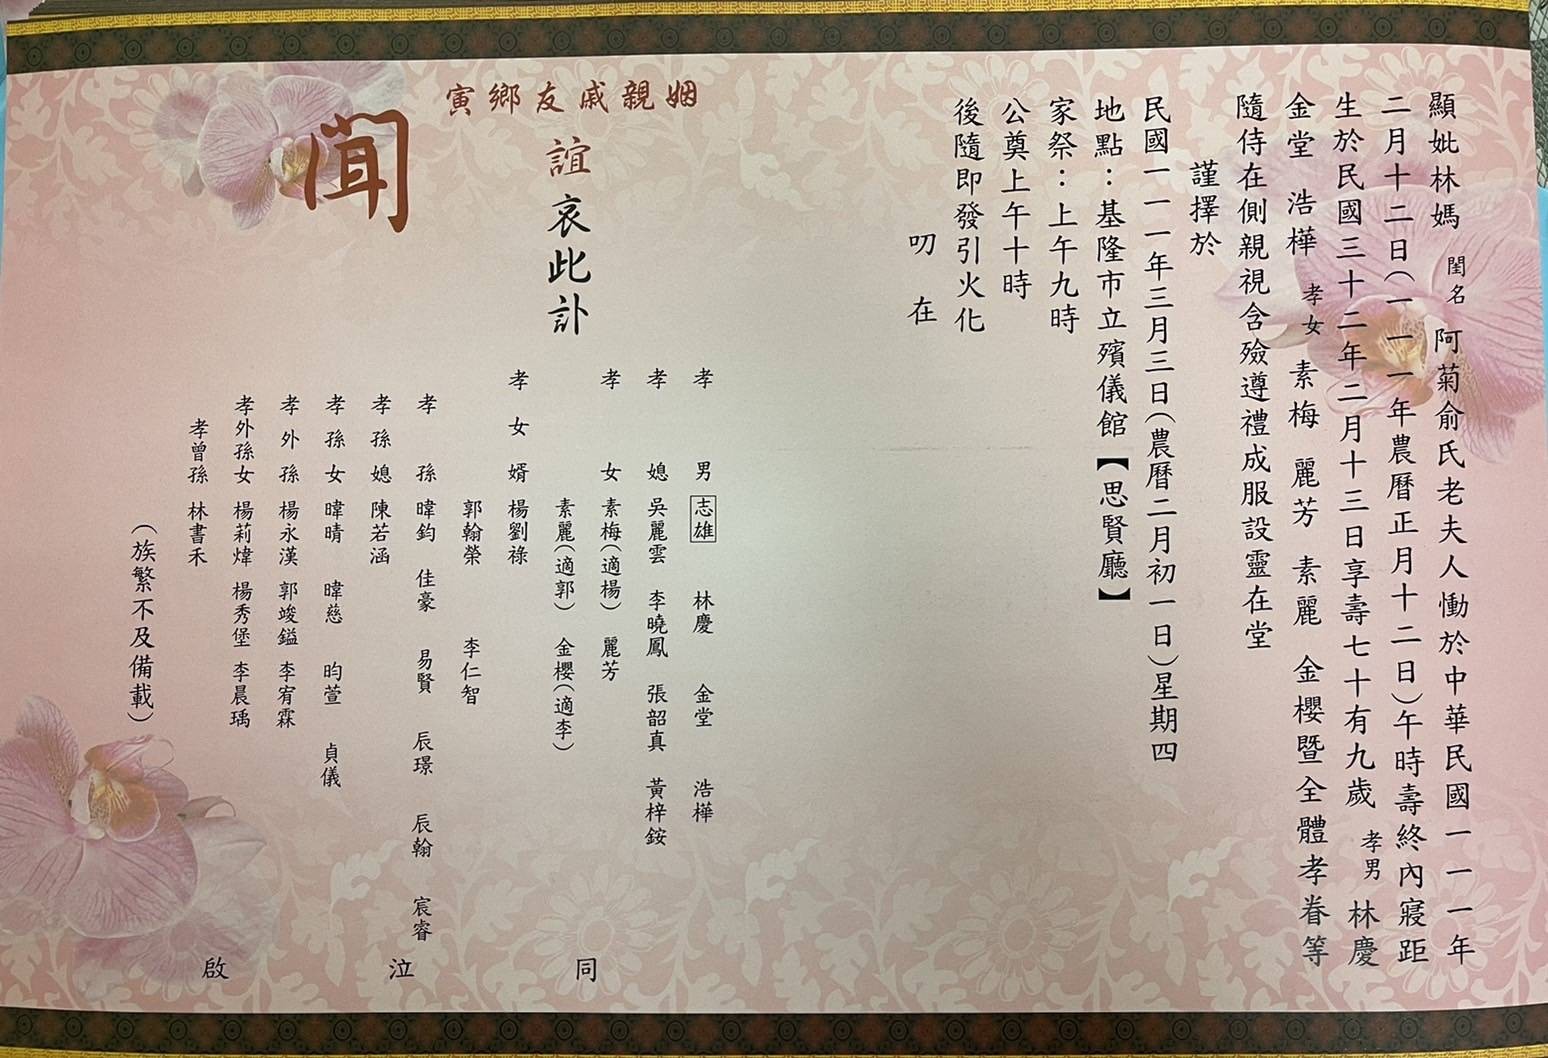 顯妣林媽閨名阿菊俞氏老夫人慟於中華民國一一一年
二月十二日(一一一年農曆正月十二日)午時壽終內寢距
生於民國三十二年二月十三日享壽七十有九歲孝男林慶
金堂 浩樺 孝女素梅 麗芳 素麗 金櫻暨全體孝眷等
隨侍在側親視含殮遵禮成服設靈在堂
謹擇於
民國一一一年三月三日(農曆二月初一日)星期四
地點：基隆市立殯儀館【思賢廳】
家祭：上午九時
公奠上午十時
後隨即發引火化
叨在
姻親戚友鄉寅
誼哀此訃
聞
孝男 志雄 林慶 金堂 浩樺
孝媳 吳麗雲 李曉鳳 張韶真 黃梓銨
孝女 素梅(適楊) 麗芳
素麗(適郭) 金櫻(適李)
孝女婿 楊劉祿
郭翰榮 李仁智
孝孫 暐鈞 佳豪 易賢 辰璟 辰翰 宸睿
孝孫媳 陳若涵
孝孫女 暐晴 暐慈 昀萱 貞儀
孝外孫 楊永漢 郭竣鎰 李宥霖
孝外孫女 楊莉煒 楊秀堡 李晨瑀
孝曾孫 林書禾
(族繁不及備載)
同泣啟